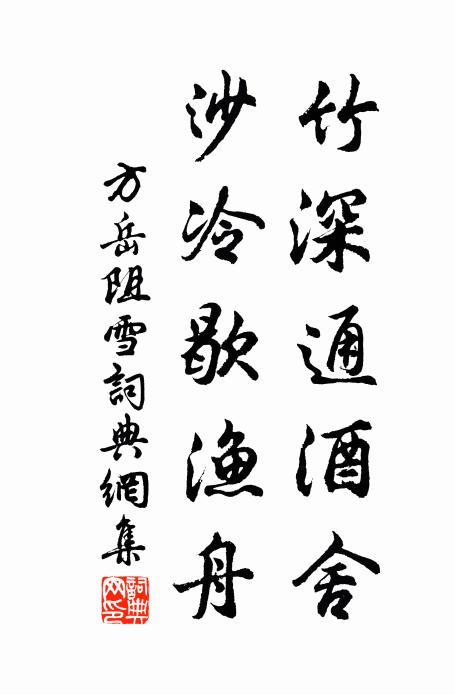 竹深通酒舍
沙冷歇漁舟
方岳阻雪詞典網集
詞典網印